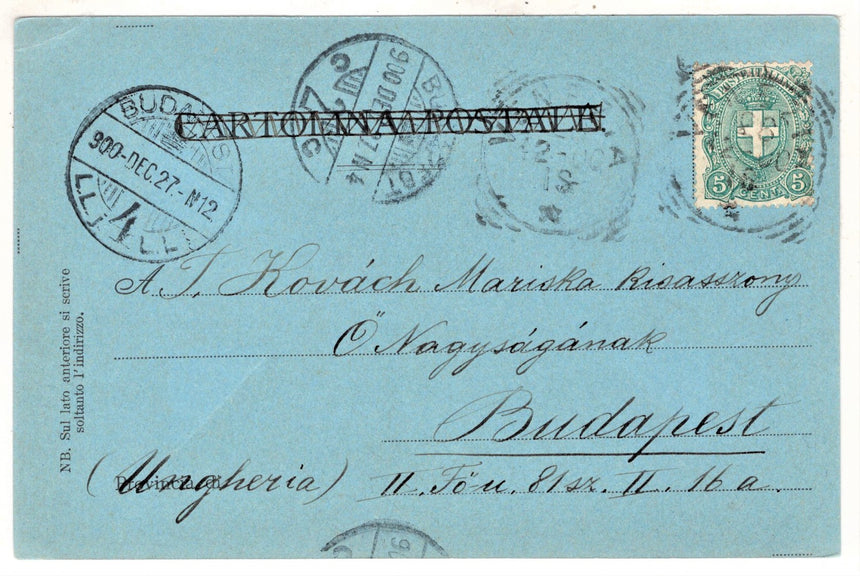 CARTOLINA POSTALE
POSTE ITALIANE
5 CENT. 5
BUDAPEST
900-DEC.27.-N12
4
900 DEC 27 N4
A T. Kovách Mariska kisasszony
Ő Nagyságának
Budapest
(Ungheria) II. Fő u. 81 sz. II. 16 a.
Provincia di
NB. Sul lato anteriore si scrive
soltanto l'indirizzo.